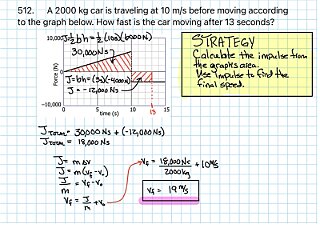 512. A 2000 kg car is traveling at 10 m/s before moving according
to the graph below. How fast is the car moving after 13 seconds?
10,000
J=½bh=½(10s)(6000N)
30,000Ns
J=bh=(3s)(-4000N)
J=-12,000Ns
Force (N)
0
-10,000
0 5 10 15
13
time (s)
STRATEGY
Calculate the impulse from
the graph's area.
Use impulse to find the
final speed.
J Total = 30000Ns + (-12,000Ns)
J Total = 18,000Ns
J = mΔv
J = m(vf-vo)
J/m = vf-vo
vf = J/m + vo
vf = 18,000Ns/2000kg + 10m/s
vf = 19 m/s